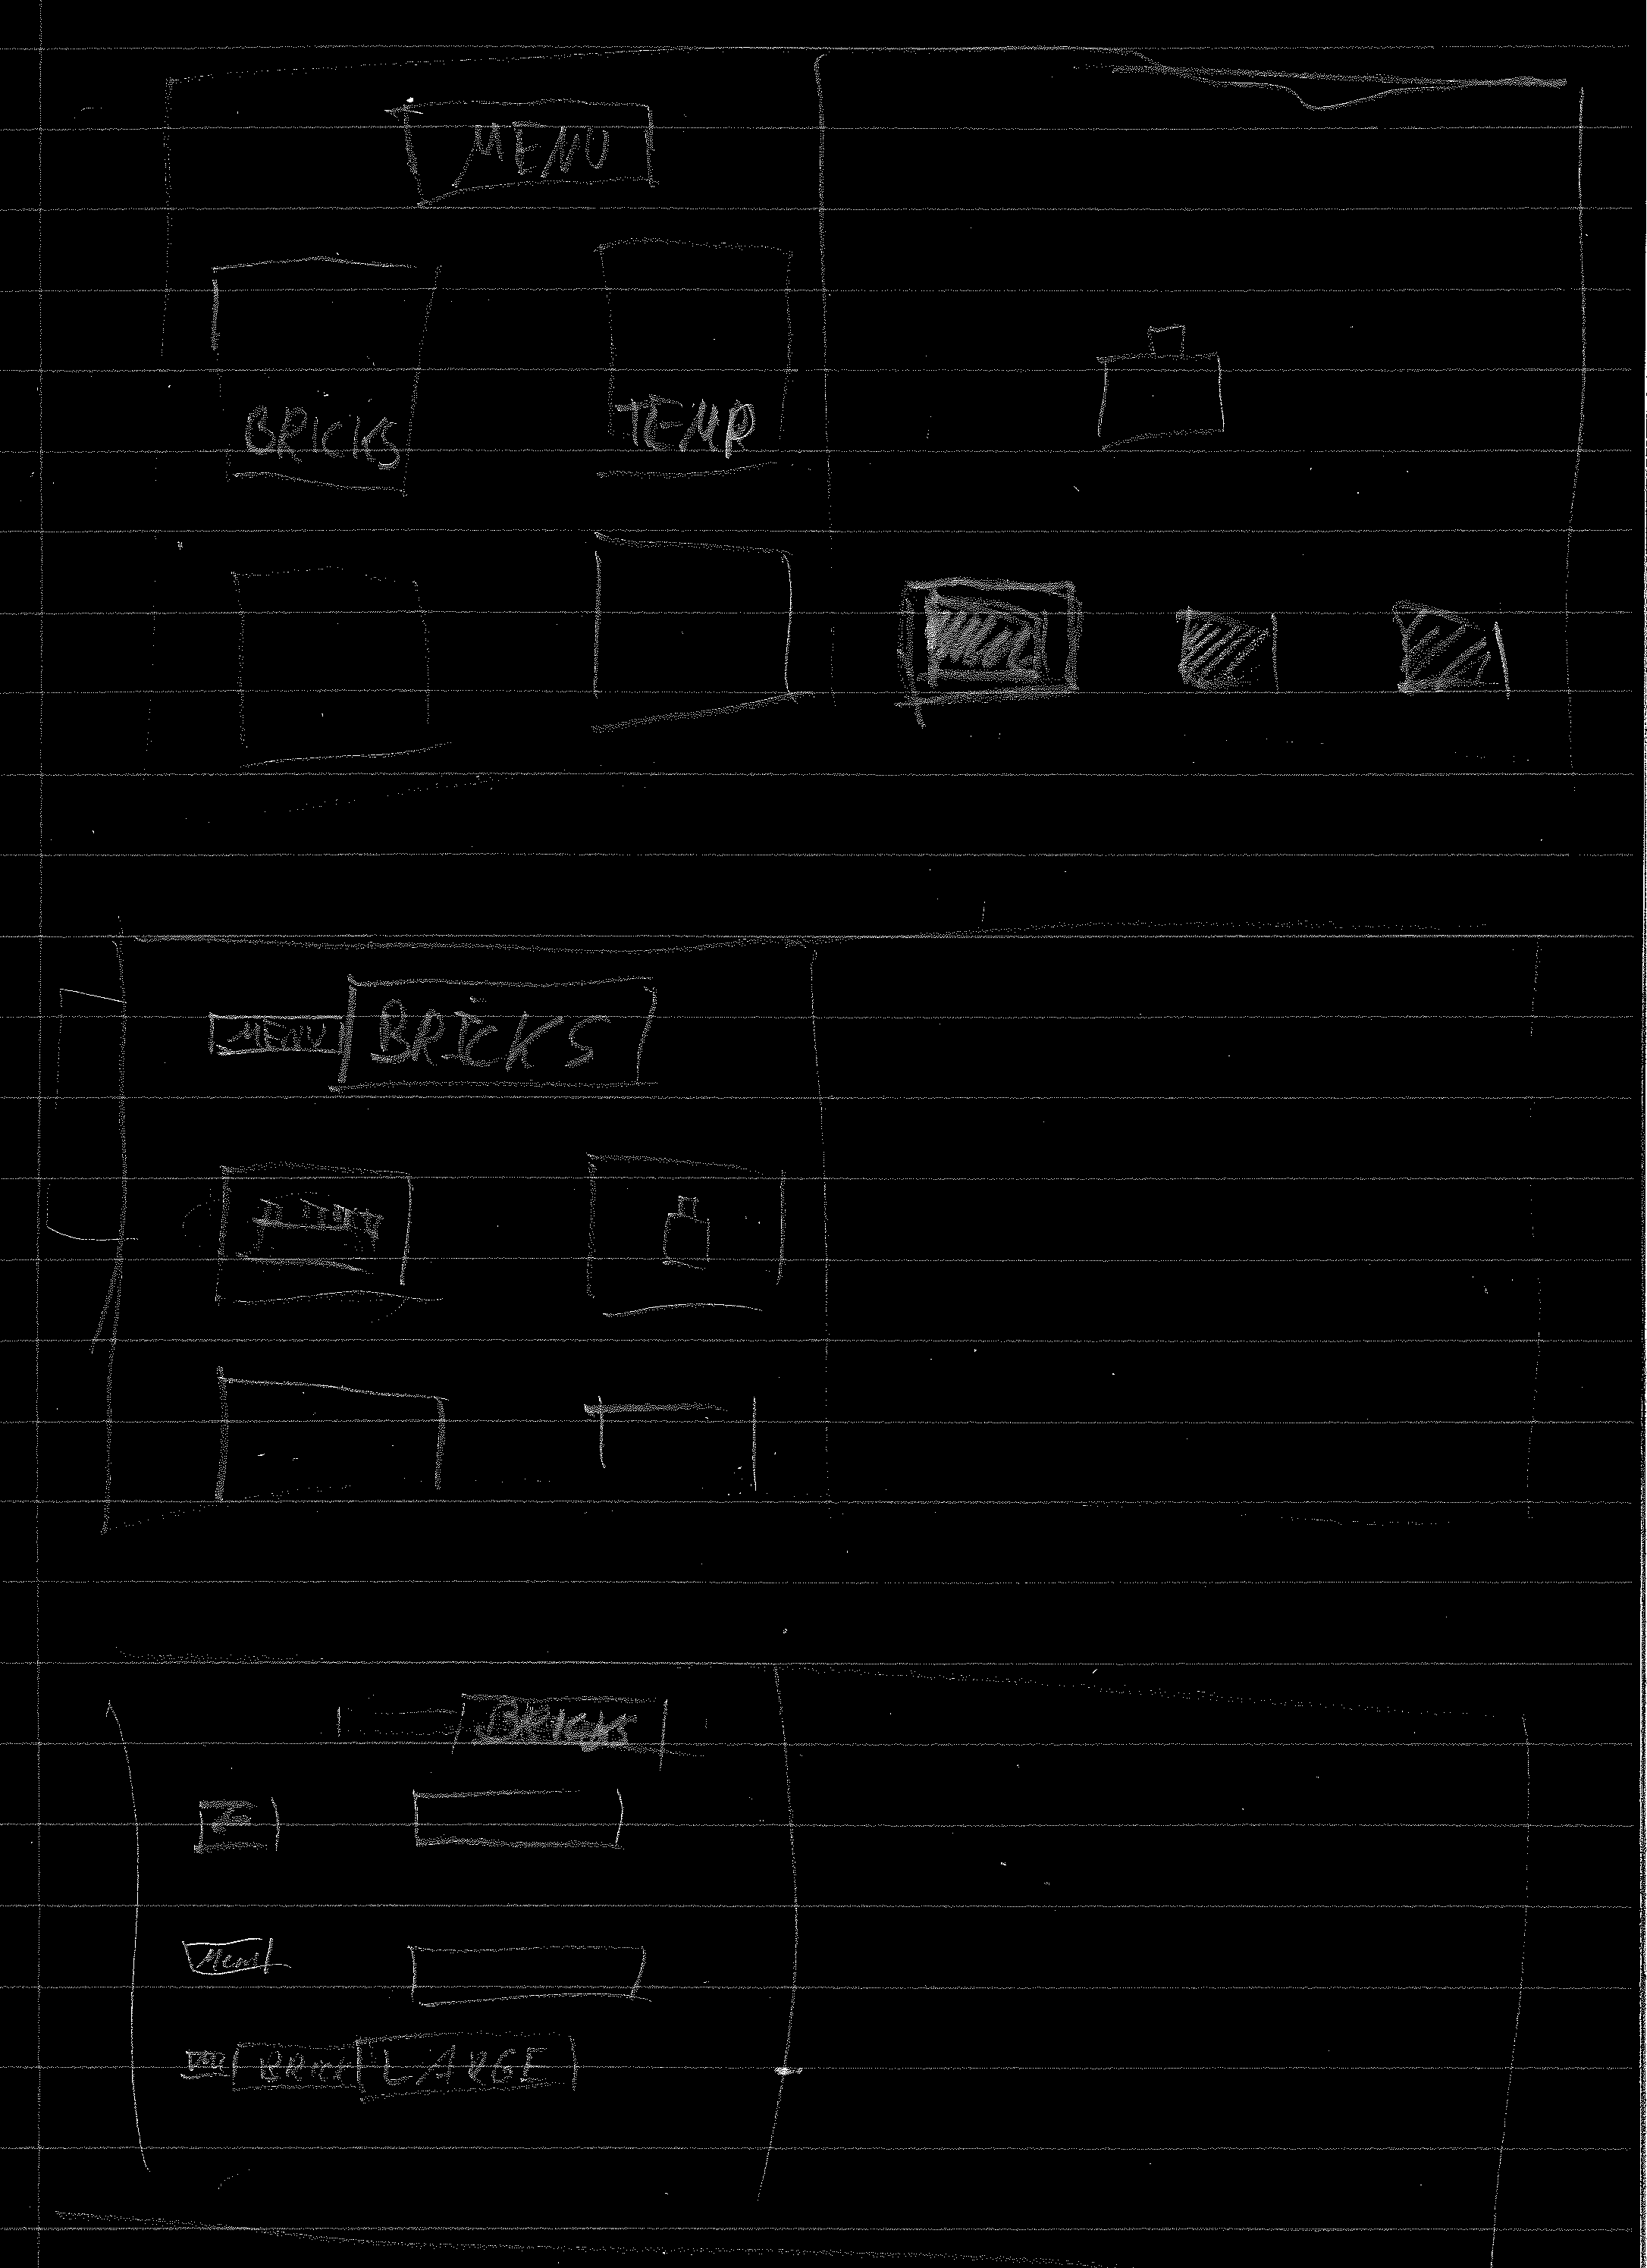 MENU
BRICKS TEMP
MENU BRICKS
BRICKS
Menu
LARGE